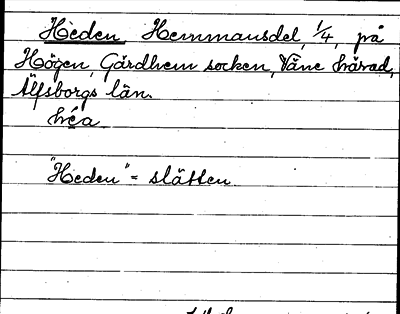 Heden Hemmansdel, 1/4, på
Högen, Gärdhem socken, Väne härad,
Älfsborgs län.
héa
"Heden" = slätten